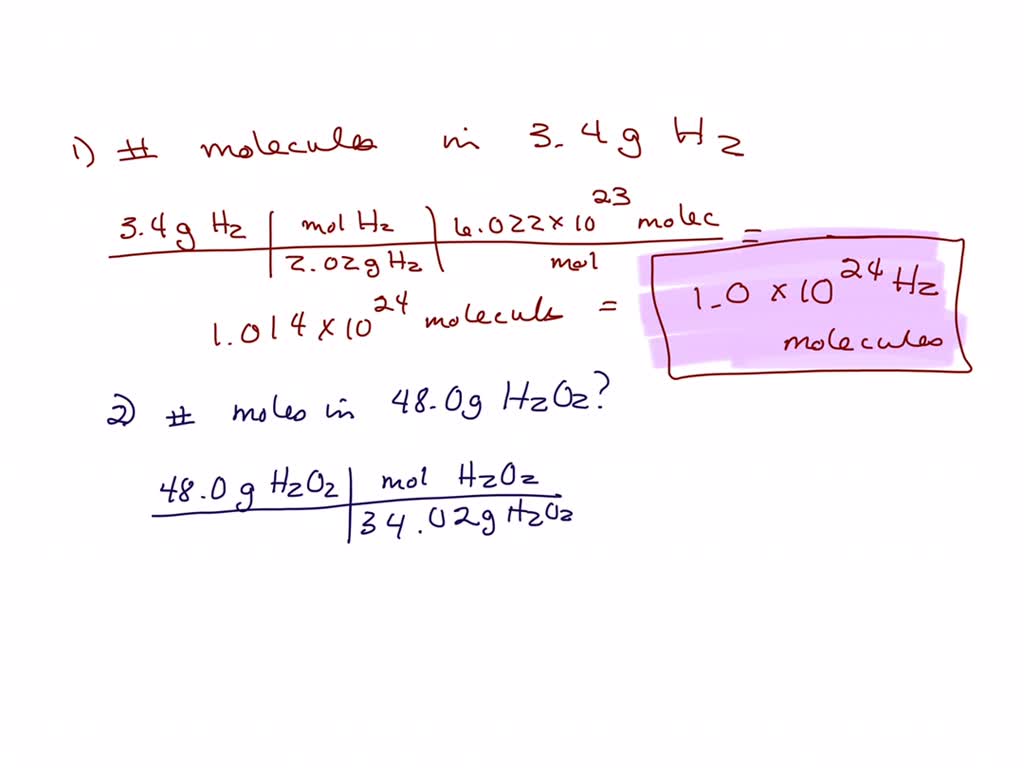 1) # molecules in 3.4g H2
3.4g H2 | mol H2 | 6.022×10^23 molec =
2.02g H2 | mol
1.014×10^24 molecules = 1.0×10^24 H2 molecules
2) # moles in 48.0g H2O2?
48.0g H2O2 | mol H2O2
34.02g H2O2